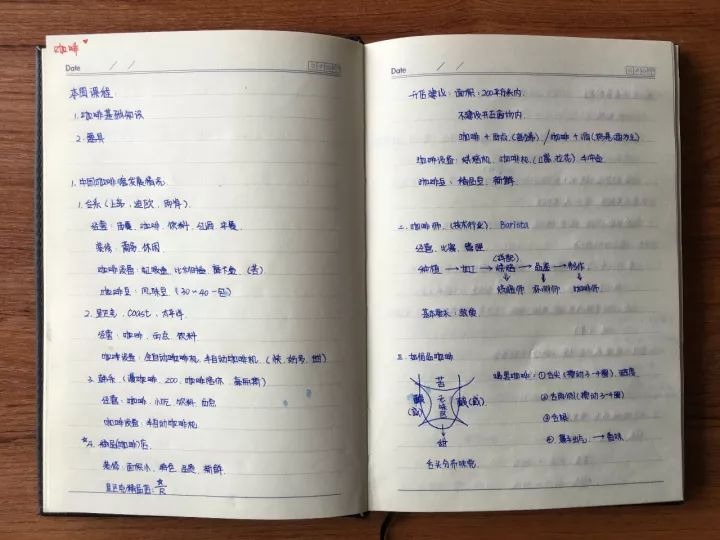 咖啡
Date / /
本周课程:
1. 咖啡基础知识
2. 器具
1. 中国咖啡馆发展情况
1. 台系(上岛、迪欧、两岸)
经营:西餐、咖啡、饮料、红酒、早餐
装修:商务、休闲
咖啡设备:虹吸壶、比利时壶、摩卡壶、(苦)
咖啡豆:风味豆(30~40一包)
2. 星巴克、Coast、太平洋
经营:咖啡、西点、饮料
咖啡设备:全自动咖啡机、半自动咖啡机、(快、奶多、甜)
3. 韩系(漫咖啡、200、咖啡陪你、
经营:咖啡、小吃、饮料、西点
咖啡设备:半自动咖啡机
4. 精品(咖啡)店
装修:面积小、特色、品质、新鲜
星巴克精品店:R
Date / /
开店建议:面积:200平米内
不建议开在商场内
咖啡+西点、/咖啡+酒
咖啡设备:烘焙机、咖啡机、手冲壶
咖啡豆:精品豆、新鲜
二、咖啡师、(技术行业)、Barista
经营、比赛、
种植→加工→烘焙→品鉴→制作
烘焙师 杯测师 咖啡师
基本要求:敬业
三、如何品咖啡
苦
酸(咸) 无味区 酸(咸)
甜
舌头分布味觉
喝黑咖啡:①舌尖(搅动3~4圈)、甜度
②舌两侧(搅动3~4圈)
③舌根
④鼻子出气→香味